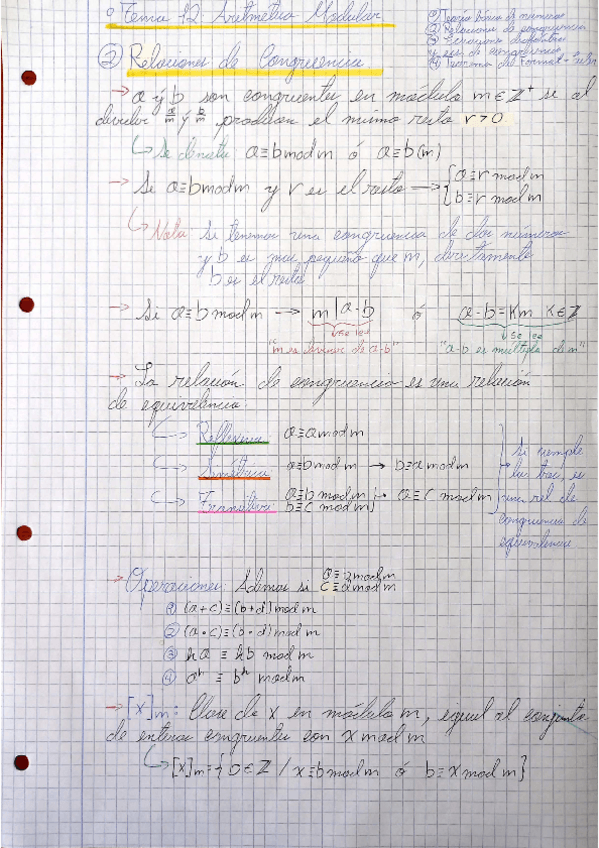 Tema 12: Aritmética Modular
① Teoría básica de números
② Relaciones de congruencia
③ Ecuaciones diofánticas
y ecs de congruencia
④ Teorema de Fermat-Euler
② Relaciones de Congruencia.
→ a y b son congruentes en módulo m∈Z⁺ si al
dividir a/m y b/m producen el mismo resto r>0.
↳ Se denota a≡b mod m ó a≡b(m)
→ Si a≡b mod m y r es el resto → { a≡r mod m
b≡r mod m
↳ Nota Si tenemos una congruencia de dos números
y b es más pequeño que m, directamente
b es el resto
→ Si a≡b mod m → m|a-b ó a-b=Km K∈Z
↓ se lee ↓ se lee
"m es divisor de a-b" "a-b es múltiplo de m"
→ La relación de congruencia es una relación
de equivalencia.
↳ Reflexiva a≡a mod m
↳ Simétrica a≡b mod m → b≡a mod m
↳ Transitiva a≡b mod m } → a≡c mod m
b≡c mod m
Si cumple
las tres, es
una rel. de
congruencia de
equivalencia
→ Operaciones: Además si a≡b mod m
c≡d mod m
① (a+c)≡(b+d) mod m
② (a·c)≡(b·d) mod m
③ ka ≡ kb mod m
④ aⁿ ≡ bⁿ mod m
→ [x]m: Clase de x en módulo m, igual al conjunto
de enteros congruentes con x mod m
↳ [x]m={b∈Z / x≡b mod m ó b≡x mod m}